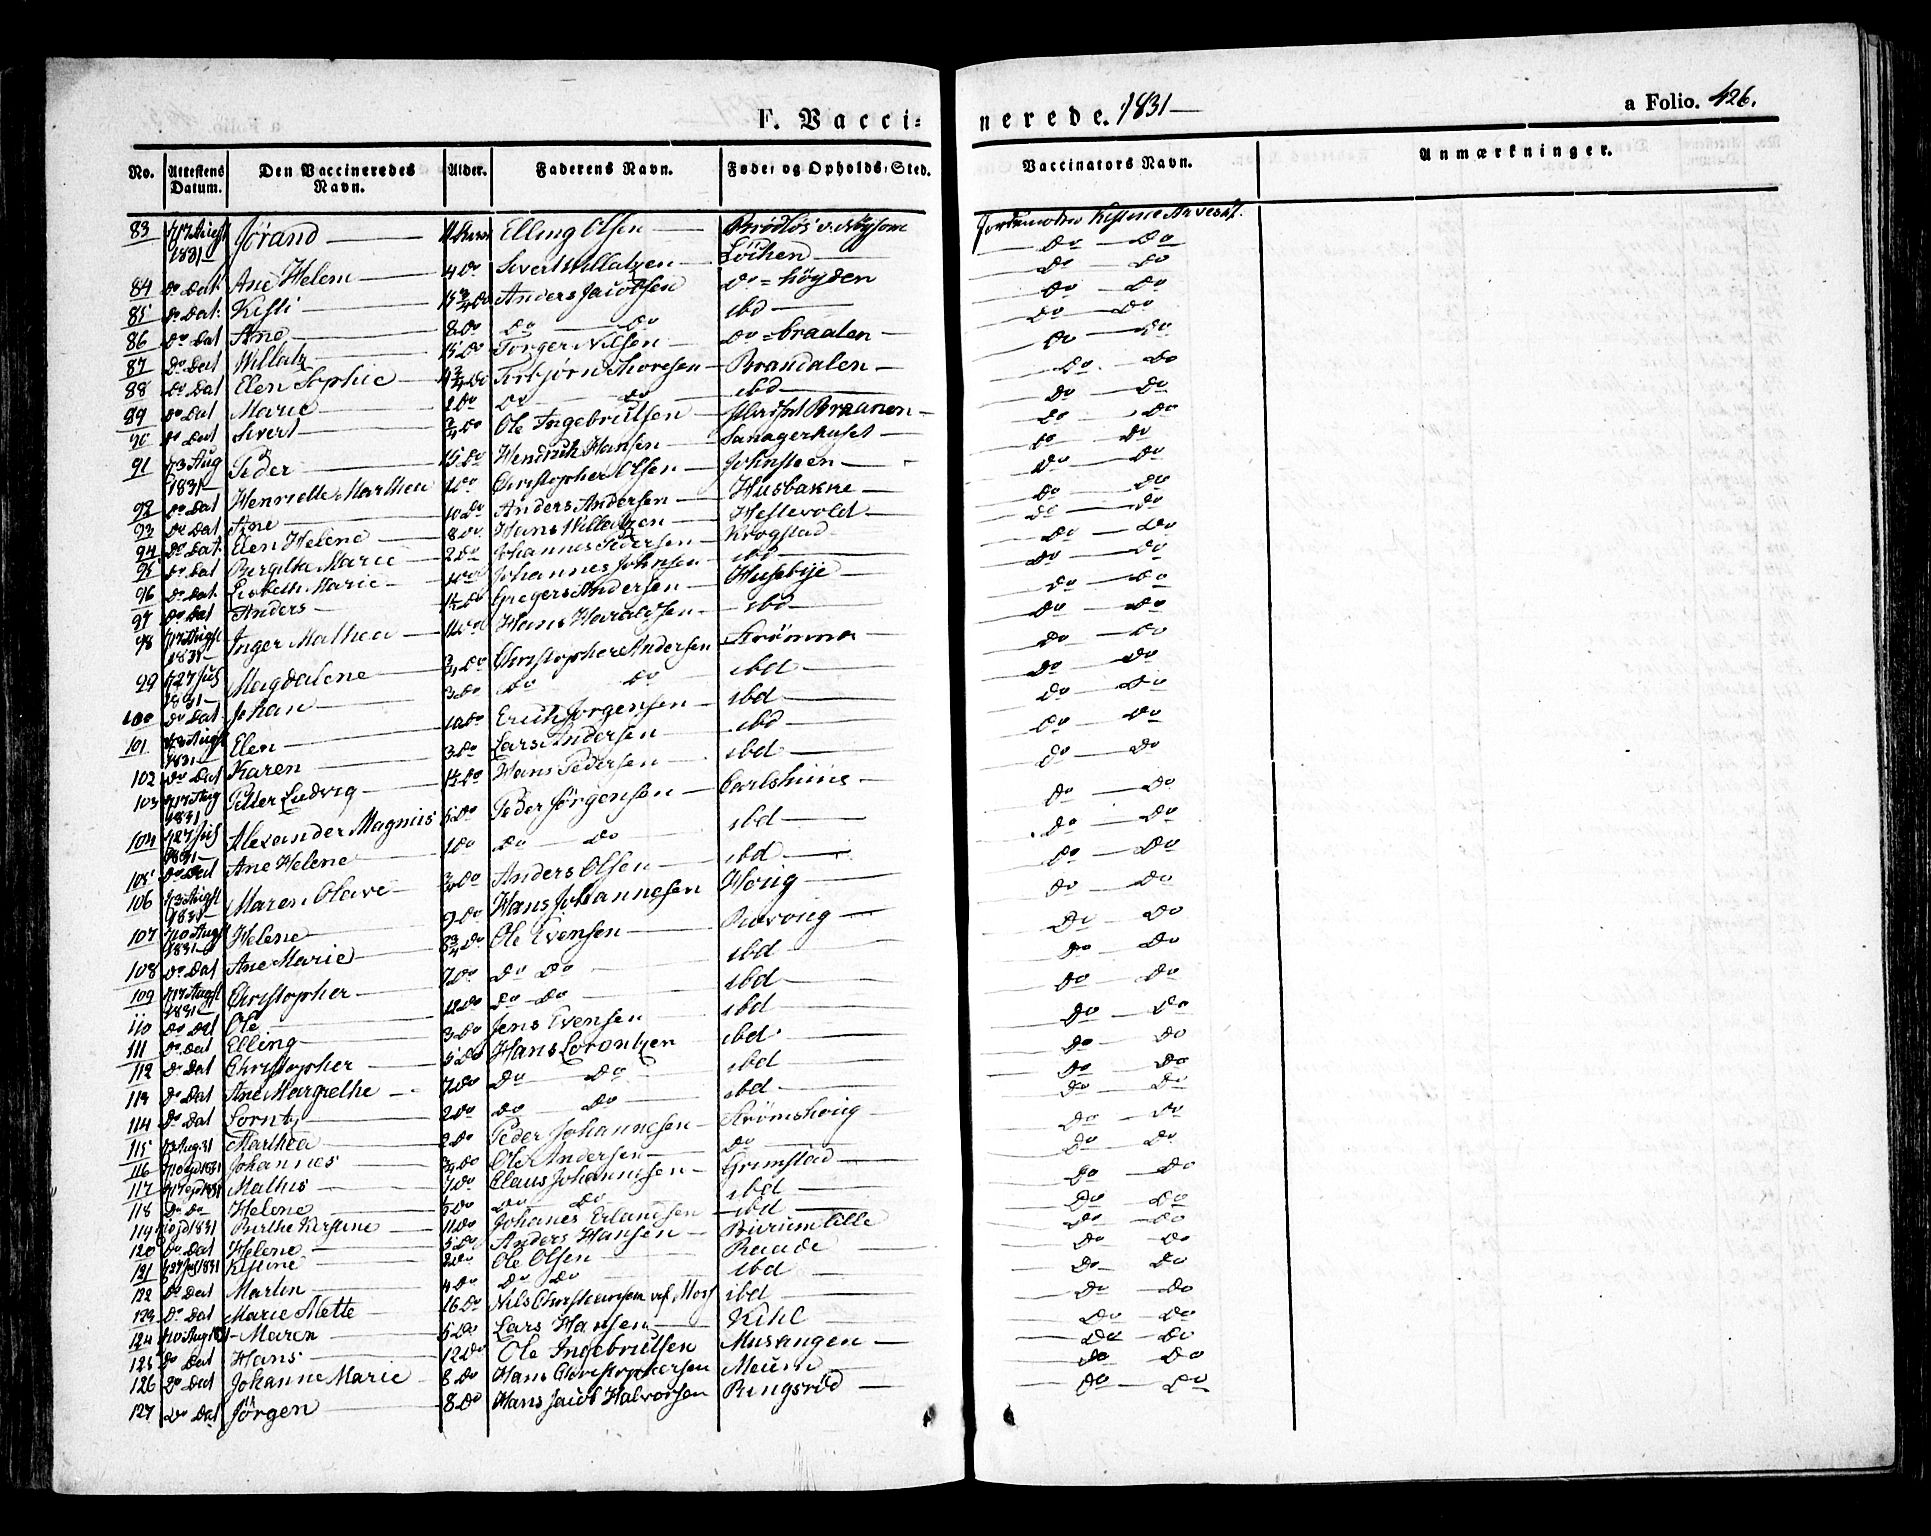 F. Vaccinerede. 1831 —
a Folio. 426.
No. | Attestens Datum. | Den Vaccineredes Navn. | Alder. | Faderens Navn. | Føde: og Opholds: Sted. | Vaccinators Navn. | Anmærkninger.
83 | 17 Augst 1831 | Jörand | Elling Olsen | Jordemoder
84 | Do Dat | Ane Helene | 4 Do | Sivert Willatzen | Löchen | Do Do
85 | Do Dat: | Kisti | Anders Jacobsen | Do = höyden | Do Do
86 | Do Dat | Ane | 8 Do | Do Do | ibd | Do Do
87 | Do Dat | Willatz | 15 Do | Torger Nilsen | Do = braalen | Do Do
88 | Do Dat | Elen Sophie | Torbjörn Thoresen | Brandalen | Do Do
89 | Do Dat | Marie | 2 Do | Do Do | ibd | Do Do
90 | Do Dat | Sivert | 3/4 Do | Ole Ingebrittsen | Braanen | Do Do
91 | 3 Aug 1831 | Peder | Hendrich Hansen | Sanagerhuset | Do Do
92 | Do Dat | Henriette Marthea | Christopher Olsen | Johnsteen | Do Do
93 | Do Dat | Ane | 10 Do | Anders Andersen | Husbakne | Do Do
94 | Do Dat | Elen Helene | 8 Do | Hans Willatzen | Hestevold | Do Do
95 | Do Dat | Bergitta Marie | 2 Do | Johannes Pedersen | Krogstad | Do Do
96 | Do Dat | Lisbeth Marie | Johannes Johnsen | ibd | Do Do
97 | Do Dat | Anders | Gregers Andersen | Husebije | Do Do
98 | 17 Augst 1831 | Inger Mathea | Hans Haraldsen | ibd | Do Do
99 | 27 Julj 1831 | Magdalene | 3/4 Do | Christopher Andersen | Strömna | Do Do
100 | Do Dat | Johan | 3 Do | Do Do | ibd | Do Do
101 | 3 Augst 1831 | Elen | 10 Do | Erich Jörgensen | ibd | Do Do
102 | Do Dat | Karen | 3 Do | Lars Andersen | ibd | Do Do
103 | 17 Aug 1831 | Petter Ludvig | Hans Pedersen | ibd | Do Do
104 | 27 Julj 1831 | Alexander Magnus | 5 Do | Peder Jörgensen | Carlshuus | Do Do
105 | Do Dat | Ane Helene | 1 Do | Do Do | ibd | Do Do
106 | 3 Augst 1831 | Maren Olave | Anders Olsen | ibd | Do Do
107 | 10 Augst 1831 | Helene | 9 Do | Hans Johannesen | Houg | Do Do
108 | Do Dat | Ane Marie | 8 3/4 Do | Ole Evensen | Do Do
109 | 17 Augst 1831 | Christopher | 7 Do | Do Do | ibd | Do Do
110 | Do Dat | Ole | 12 Do | Do Do | ibd | Do Do
111 | Do Dat | Elling | 3 Do | Jens Evensen | ibd | Do Do
112 | Do Dat | Christopher | 5 Do | Hans Lorentzen | ibd | Do Do
113 | Do Dat | Ane Margrethe | 7 Do | Do Do | ibd | Do Do
114 | Do Dat | Lorntz | 2 Do | Do Do | ibd | Do Do
115 | 3 Aug: 31 | Marthea | 2 Do | Peder Johannesen | Strömshoug | Do Do
116 | Johannes | 3/4 Do | Ole Andersen | Do | Do Do
117 | Mathis | 7 Do | Claus Johannesen | Grimstad | Do Do
118 | Do Do | Helene | 5 Do | Do Do | ibd | Do Do
119 | Berthe Kirstine | 11 Do | Johanes Erlandsen | ibd | Do Do
120 | Do Dat | Helene | 5 Do | Anders Hansen | Do Do
121 | 27 Julj 1831 | Kistine | 2 Do | Ole Olsen | Raade | Do Do
122 | Do Dat | Martin | 4 Do | Do Do | ibd | Do Do
123 | Do Dat | Marie Mette | 16 Do | Nils Christiansen ved Moss | ibd | Do Do
124 | 10 Aug | Maren | 5 Do | Lars Hansen | Kihl | Do Do
125 | Do Dat | Hans | 12 Do | Ole Ingebrittsen | Musangen | Do Do
126 | Do Dat | Johanne Marie | 8 Do | Hans Christophersen | Meum | Do Do
127 | Do Dat | Jörgen | 8 Do | Hans Jacob Halvorsen | Ringsröd | Do Do